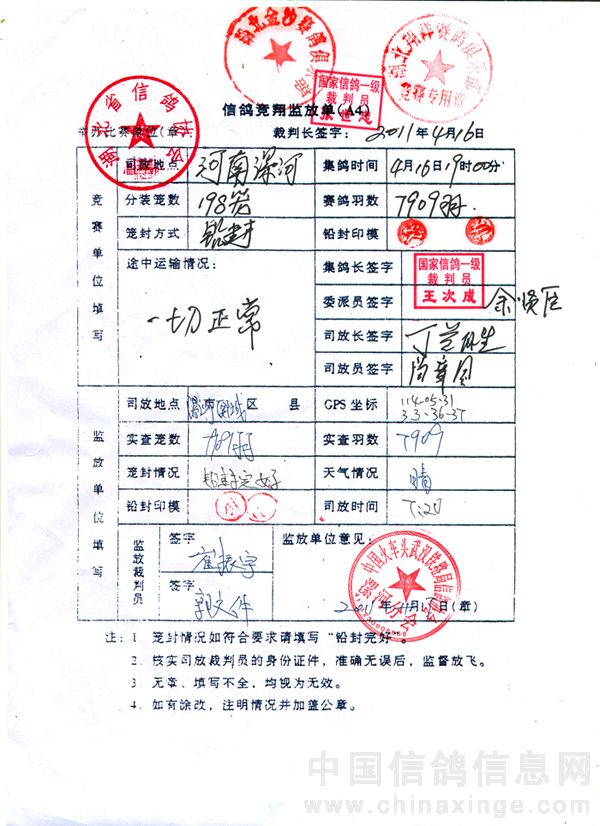 国家信鸽一级
裁判员
竞赛专用章
湖北省信鸽协会
信鸽竞翔监放单(A4)
举办比赛单位(章
裁判长签字: 2011年4月16日
竞赛单位填写
司放地点 河南漯河 集鸽时间 4月16日19时00分
分装笼数 198笼 赛鸽羽数 7909羽
笼封方式 铅封 铅封印模
途中运输情况: 集鸽长签字
国家信鸽一级
裁判员
王次成
一切正常
委派员签字
司放长签字
司放员签字
监放单位填写
司放地点 区 县 GPS 坐标 114-05-31
33-36-37
实查笼数 实查羽数 7909
笼封情况 铅封完好 天气情况 晴
铅封印模 司放时间 7:20
监放裁判员
签字 监放单位意见:
崔振宇
签字
郭文件
中国火车头武汉铁路局信鸽协会
漯河分会
2011年4月17日(章)
注: 1. 笼封情况如符合要求请填写“铅封完好”。
2. 核实司放裁判员的身份证件,准确无误后,监督放飞。
3. 无章、填写不全、均视为无效。
4. 如有涂改,注明情况并加盖公章。
中国信鸽信息网
www.chinaxinge.com